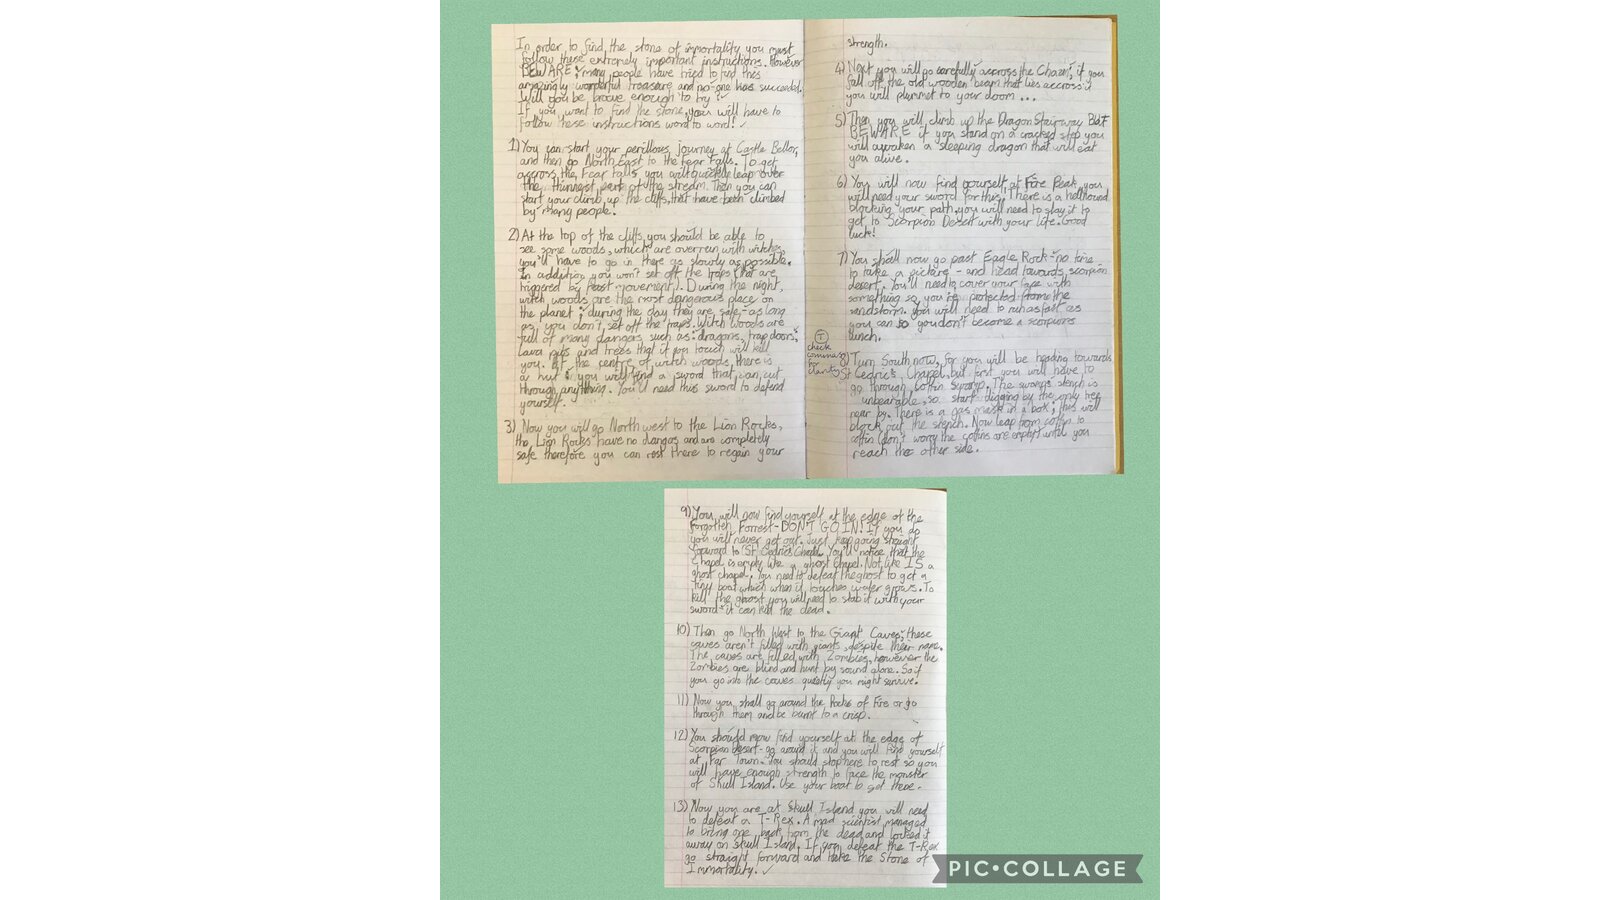 In order to find the stone of immortality you must
follow these extremely important instructions. However
BEWARE: many people have tried to find this
amazingly wonderful treasure and no-one has succeeded.
Will you be brave enough to try?
If you want to find the stone, you will have to
follow these instructions word to word!
1) You can start your perillous journey at Castle Bellor,
and then go North East to the Fear Falls. To get
accross the Fear Falls you will quickly leap over
the thinnest part of the stream. Then you can
start your climb up the cliffs, that have been climbed
by many people.
2) At the top of the cliffs, you should be able to
see some woods, which are overrun with witches,
you'll have to go in there as slowly as possible.
In addition you won't set off the traps (that are
triggered by fast movement). During the night,
witch woods are the most dangerous place on
the planet; during the day they are safe - as long
as you don't set off the traps. Witch Woods are
full of many dangers such as: dragons, trap doors,
lava pits and trees that if you touch will kill
you. At the centre of witch woods, there is
a hut: you will find a sword that can cut
through anything. You'll need this sword to defend
yourself.
3) Now you will go North west to the Lion Rocks,
the Lion Rocks have no dangers and are completely
safe therefore you can rest there to regain your
strength.
4) Next you will go carefully accross the Chasm; if you
fall off the old wooden beam that lies accross it
you will plummet to your doom ...
5) Then you will climb up the Dragon Stairway But
BEWARE if you stand on a cracked step you
will awaken a sleeping dragon that will eat
you alive.
6) You will now find yourself at Fire Peak, you
will need your sword for this. There is a hellhound
blocking your path, you will need to slay it to
get to Scorpion Desert with your life. Good
luck!
7) You shall now go past Eagle Rock - no time
to take a picture - and head towards scorpion
desert. You'll need to cover your face with
something so you're protected from the
sandstorm. you will need to run as fast as
you can so you don't become a scorpions
lunch.
T
check
commas
for
clarity
8) Turn South now, for you will be heading towards
St Cedric's Chapel, but first you will have to
go through coffin swamp. The swamps stench is
unbearable, so start digging by the only tree
near by. There is a gas mask in a box; this will
block out the stench. Now leap from coffin to
coffin (don't worry the coffins are empty) until you
reach the other side.
9) You will now find yourself at the edge of the
Forgotten Forrest - DON'T GO IN! If you do
you will never get out. Just keep going straight
forward to St Cedric's Chapel. You'll notice that the
Chapel is empty like a ghost chapel. Not like IS a
ghost chapel. You need to defeat the ghost to get a
tiny boat which when it touches water grows. To
kill the ghost you will need to stab it with your
sword - it can kill the dead.
10) Then go North West to the Giant Caves; these
caves aren't filled with giants, despite their name.
The caves are filled with Zombies, however the
Zombies are blind and hunt by sound alone. So if
you go into the caves quietly you might survive.
11) Now you shall go around the Rocks of Fire or go
through them and be burnt to a crisp.
12) You should now find yourself at the edge of
Scorpion desert - go around it and you will find yourself
at Far Town. You should stop here to rest so you
will have enough strength to face the monster
of Skull Island. Use your boat to get there.
13) Now you are at Skull Island you will need
to defeat a T-Rex. A mad scientist managed
to bring one back from the dead and locked it
away on Skull Island. If you defeat the T-Rex
go straight forward and take the Stone of
Immortality.
PIC•COLLAGE